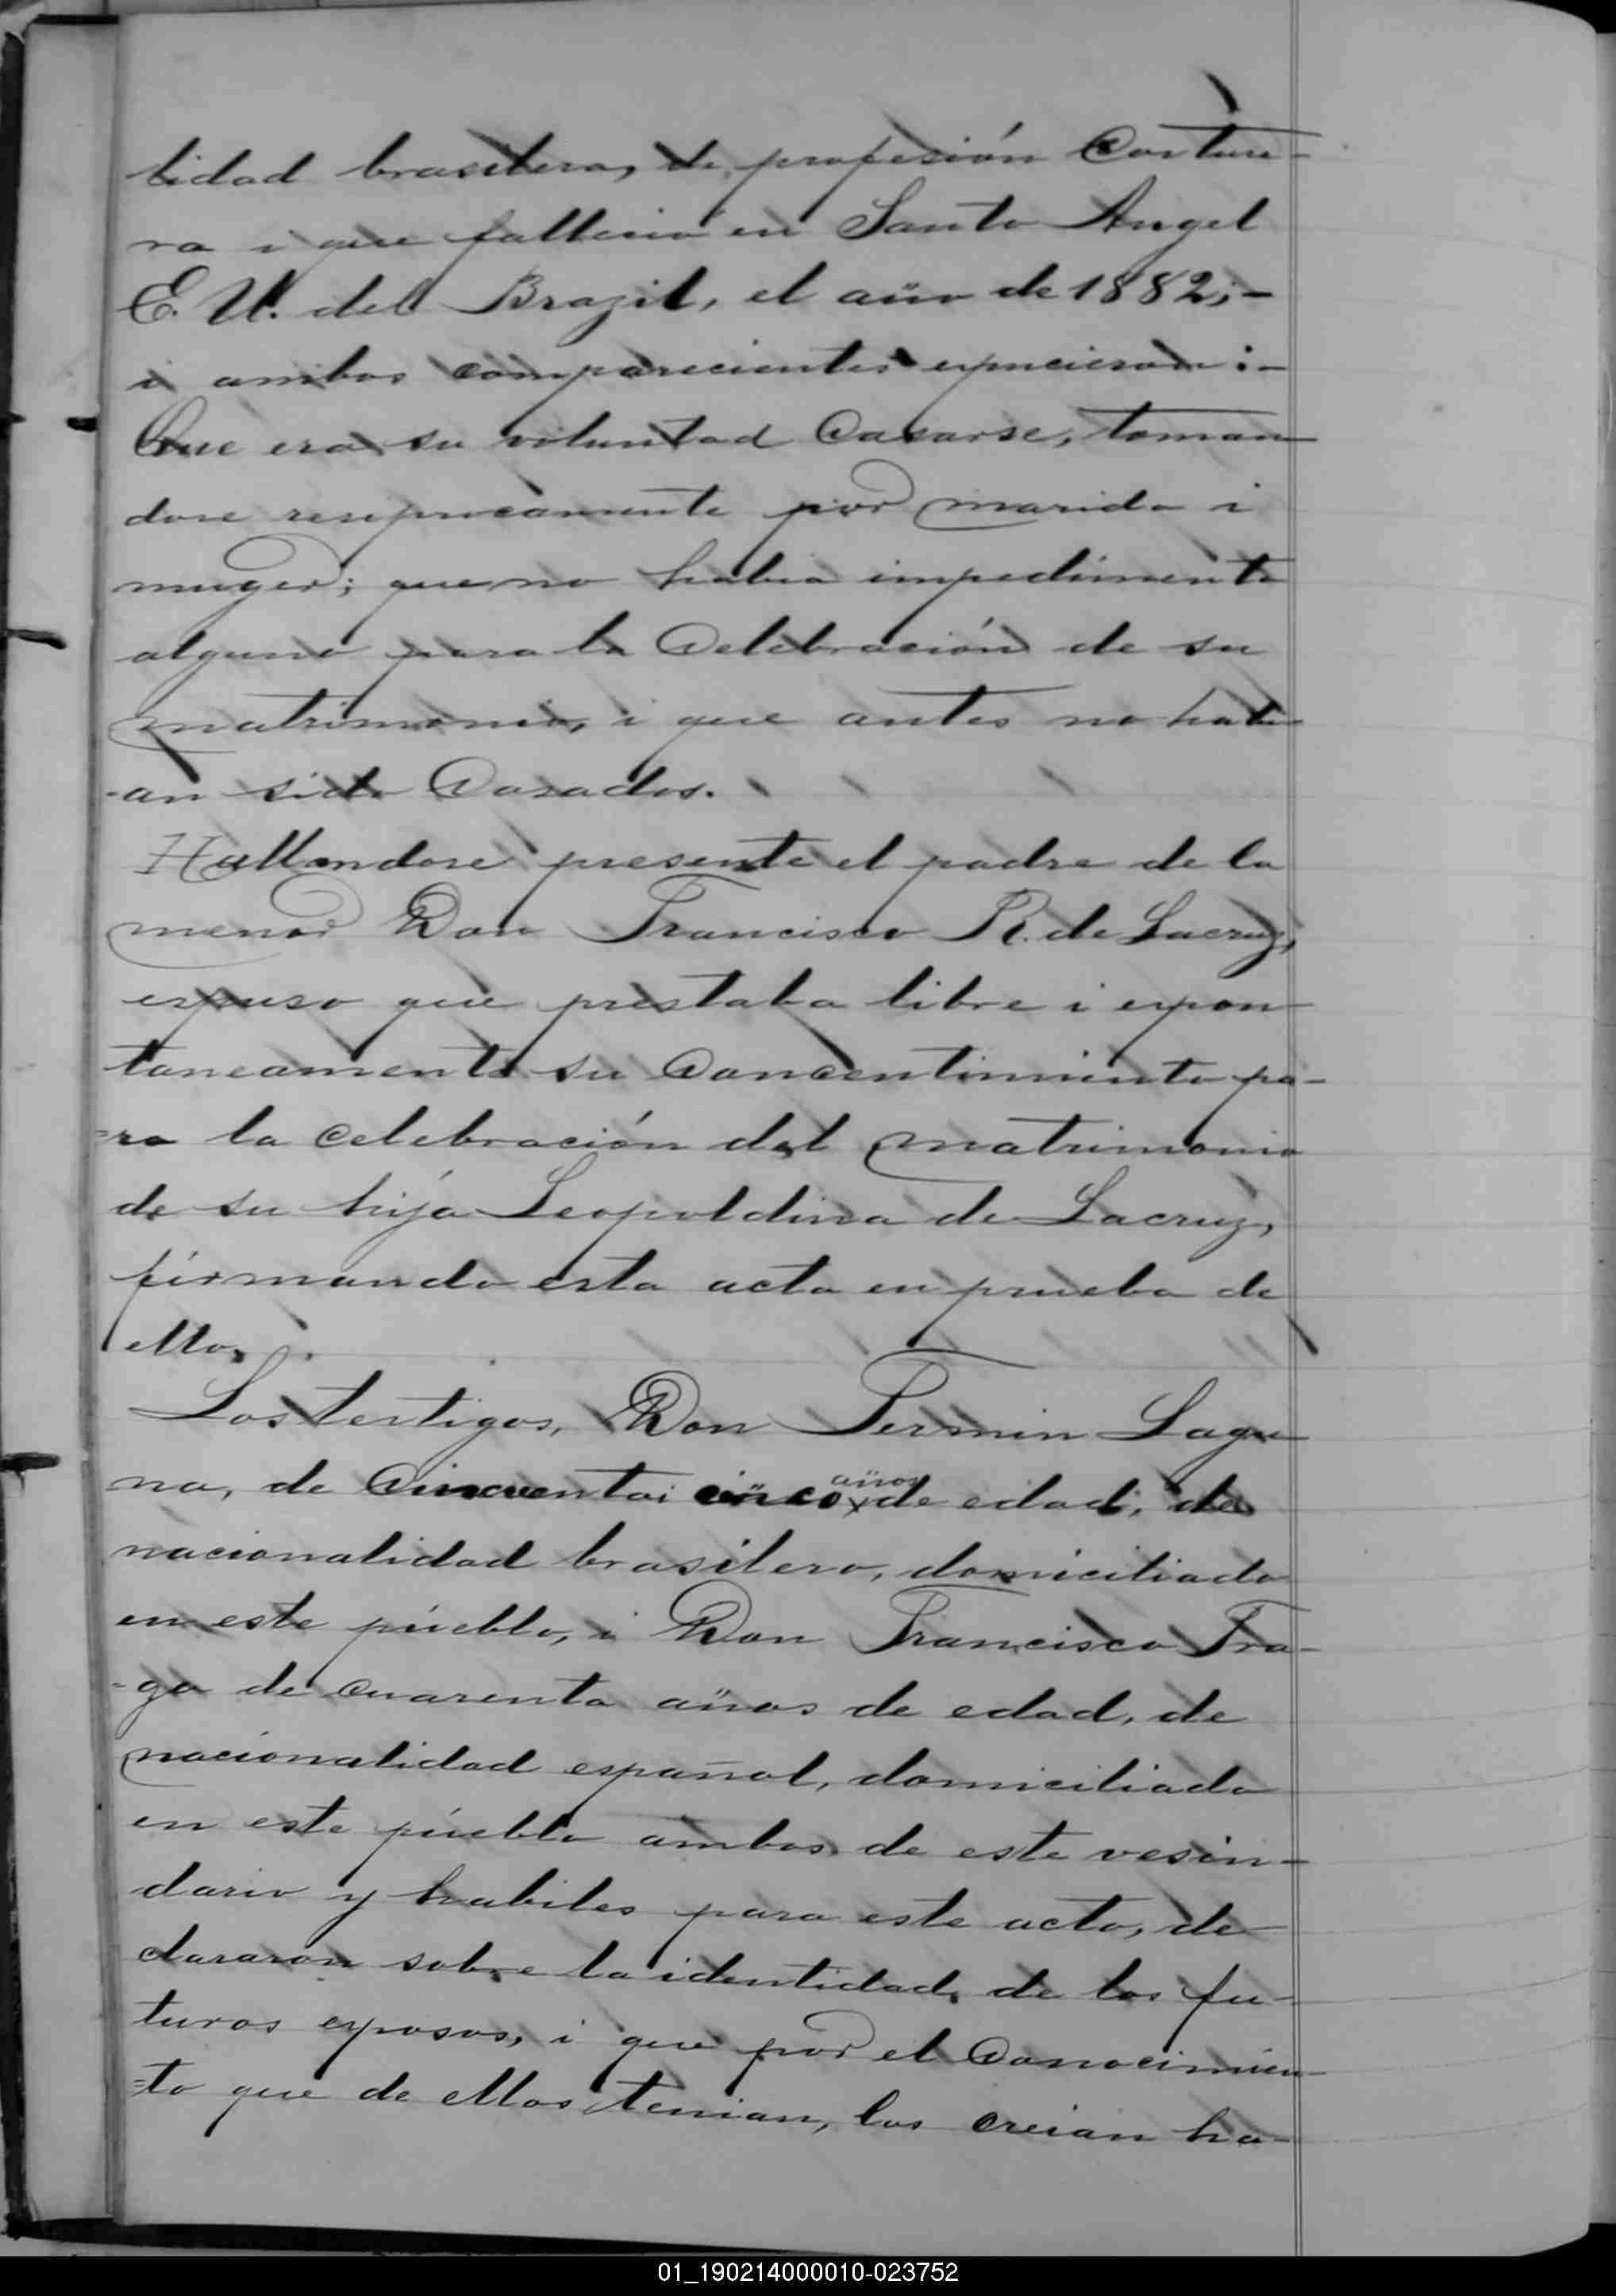 lidad brasilera, de profesión Costure-
ra i que fallecio en Santo Angel
E. U. del Brazil, el año de 1882;-
i ambos comparecientes espucieron:-
Que era su voluntad Casarse, toman
dose resiprocamente por marido i
muger; que no habia impedimento
alguno para la Celebración de su
matrimonio, i que antes no habi
-an sido Casados.
Hallandose presente el padre de la
menor Don Francisco R. de Lacruz,
espuso que prestaba libre i espon
taneamente su Concentimiento pa-
=ra la celebración del matrimonio
de su hija Leopoldina de Lacruz,
firmando esta acta en prueba de
ello.
Los testigos, Don Fermin Lagu
na, de Cincuentai cinco años de edad, de
nacionalidad brasilero, domiciliado
en este pueblo, i Don Francisco Fra-
-ga de cuarenta años de edad, de
nacionalidad español, domiciliado
en este pueblo ambos de este vesin-
dario y habiles para este acto, de-
clararon sobre la identidad de los fu-
turos esposos, i que por el Conocimien-
=to que de ellos tenian, los creian ha-
01_190214000010-023752